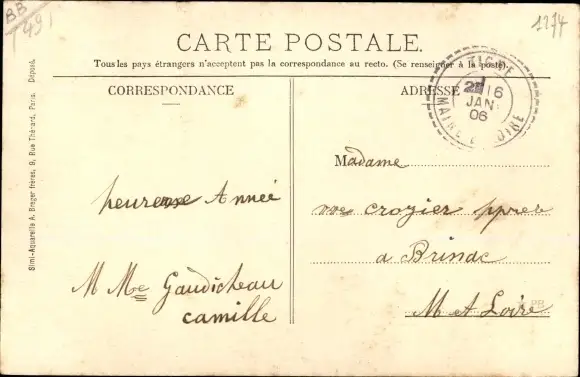 BB
491
1274
CARTE POSTALE.
Tous les pays étrangers n'acceptent pas la correspondance au recto. (Se renseigner à la poste).
CORRESPONDANCE
heureuse Année
M Me Gaudicheau
camille
ADRESSE
16
JAN
06
MAINE ET LOIRE
Madame
crozier
a Brinac
M et Loire
Simi-Aquarelle A. Breger frères, 9, Rue Thénard, Paris. Déposé.